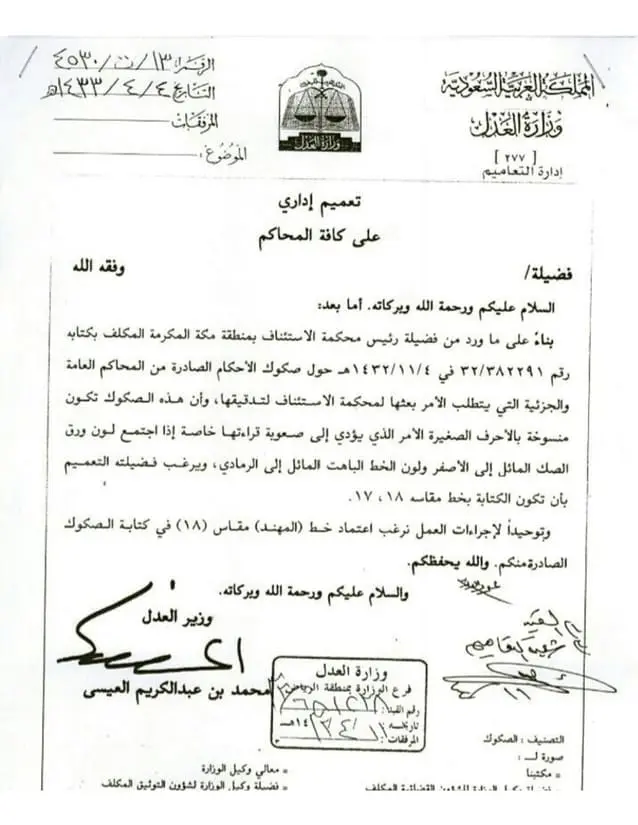 المملكة العربية السعودية
وزارة العدل
[ ٢٧٧ ]
إدارة التعاميم
وزارة العدل
الرقم: ١٣/ت/٤٥٣٠
التاريخ: ١٤٣٣/٤/٤هـ
المرفقات:
الموضوع:
تعميم إداري
على كافة المحاكم
فضيلة/ وفقه الله
السلام عليكم ورحمة الله وبركاته. أما بعد:
بناءً على ما ورد من فضيلة رئيس محكمة الاستئناف بمنطقة مكة المكرمة المكلف بكتابه
رقم ٣٢/٣٨٢٢٩١ في ١٤٣٢/١١/٤هـ حول صكوك الأحكام الصادرة من المحاكم العامة
والجزئية التي يتطلب الأمر بعثها لمحكمة الاستئناف لتدقيقها، وأن هذه الصكوك تكون
منسوخة بالأحرف الصغيرة الأمر الذي يؤدي إلى صعوبة قراءتها خاصة إذا اجتمع لون ورق
الصك المائل إلى الأصفر ولون الخط الباهت المائل إلى الرمادي، ويرغب فضيلته التعميم
بأن تكون الكتابة بخط مقاسه ١٨، ١٧.
وتوحيداً لإجراءات العمل نرغب اعتماد خط (المهند) مقاس (١٨) في كتابة الصكوك
الصادرة منكم. والله يحفظكم.
والسلام عليكم ورحمة الله وبركاته.
وزير العدل
محمد بن عبدالكريم العيسى
وزارة العدل
فرع الوزارة بمنطقة الرياض
رقم القيد:
تاريخه ١٤هـ
المرفقات:
التصنيف: الصكوك
صورة لـ:
* مكتبنا
* معالي وكيل الوزارة
* فضيلة وكيل الوزارة للشؤون القضائية المكلف
* فضيلة وكيل الوزارة لشؤون التوثيق المكلف